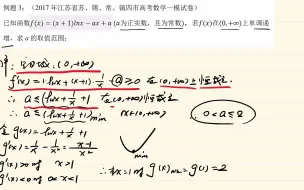 例题 3：（2017 年江苏省苏、锡、常、镇四市高考数学一模试卷）
已知函数f(x) = (x + 1)lnx − ax + a (a为正实数，且为常数). 若f(x)在(0, +∞)上单调递
增，求 a 的取值范围；
解: 定义域: (0, +∞)
f'(x) = 1·lnx + (x+1)·1/x − a ≥ 0 在 (0, +∞) 上恒成立
∴ a ≤ lnx + 1/x + 1 在 (0, +∞) 恒成立
∴ a ≤ (lnx + 1/x + 1)min x∈(0, +∞)
∴ 0 < a ≤ 2
令 g(x) = lnx + 1/x + 1
g'(x) = 1/x − 1/x² = (x−1)/x²
min
g'(x) > 0 时 x > 1
∴ 当x = 1 时 g(x)min = g(1) = 2
g'(x) < 0 时 0 < x < 1